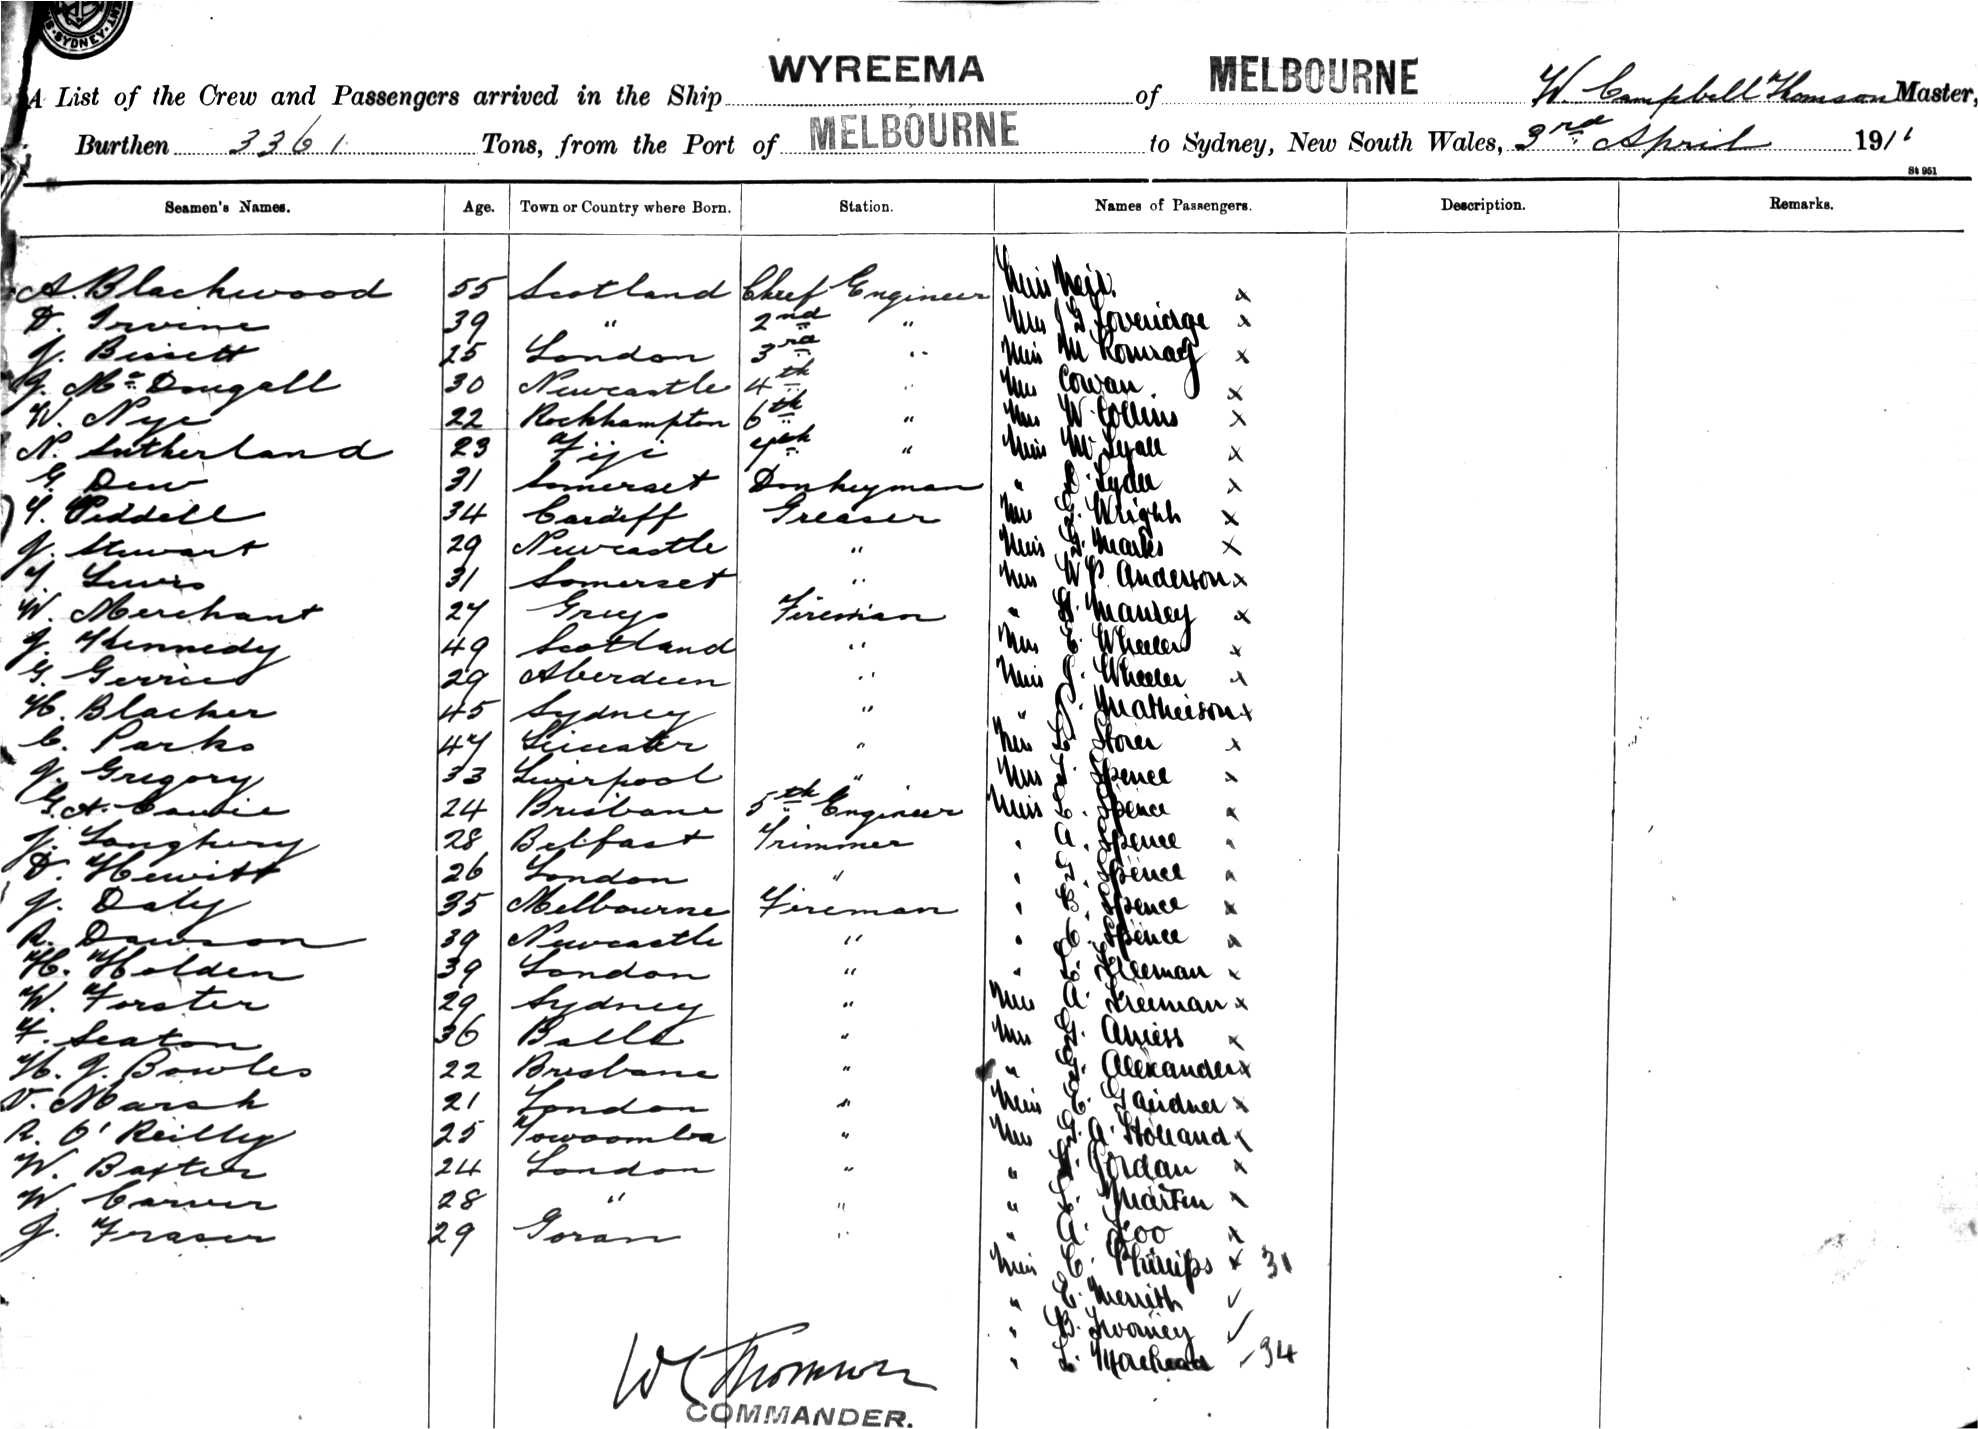 SYDNEY
WYREEMA MELBOURNE
A List of the Crew and Passengers arrived in the Ship WYREEMA of MELBOURNE W. Campbell Thomson Master,
Burthen 3361 Tons, from the Port of MELBOURNE to Sydney, New South Wales, 3rd April 1911
St 951
Seamen's Names. Age. Town or Country where Born. Station. Names of Passengers. Description. Remarks.
A. Blackwood 55 Scotland Chief Engineer Miss x
D. Irvine 39 " 2nd " Mrs J G Loveridge x
J. Bissett 25 London 3rd " Miss M x
J. McDougall 30 Newcastle 4th " Mrs Cowan x
W. Nye 22 Rockhampton 6th " Mrs W Collins x
N. Sutherland 23 Fiji 7th " Miss M Lyall x
G. Dew 31 Somerset Donkeyman " x
T. Piddell 34 Cardiff Greaser Mrs Wright x
J. Stewart 29 Newcastle " Miss G. Marks x
T. Lewis 31 Somerset " Mrs W P. Anderson x
W. Merchant 27 Grays Fireman " x
J. Kennedy 49 Scotland " Mrs E. Wheeler x
G. Gerrie 29 Aberdeen " Miss J. Wheeler x
H. Blacker 45 Sydney " " Matheison x
C. Parks 47 Leicester " Mrs Storer x
J. Gregory 33 Liverpool " Mrs Spence x
G. A. Cowie 24 Brisbane 5th Engineer Miss Spence x
J. Loughery 28 Belfast Trimmer " A. Spence x
D. Hewitt 26 London " " Spence x
J. Daly 35 Melbourne Fireman " C. Spence x
R. Dawson 39 Newcastle " " Spence x
H. Holden 39 London " " Freeman x
W. Forster 29 Sydney " Mrs A. Freeman x
F. Seaton 36 " Mrs G. Amess x
H. J. Bowles 22 Brisbane " " Alexander x
V. Marsh 21 London " Miss E. Gardner x
R. O'Reilly 25 Towoomba " Mrs G. A. Holland x
W. Baxter 24 London " " Jordan x
W. Carver 28 " " " L. Martin x
J. Fraser 29 Goran " " A. Foo x
Miss C. Phillips x 31
" E. Merrith ✓
" B. Twomey ✓
" L. Morehead ✓ 34
W C Thomson
COMMANDER.